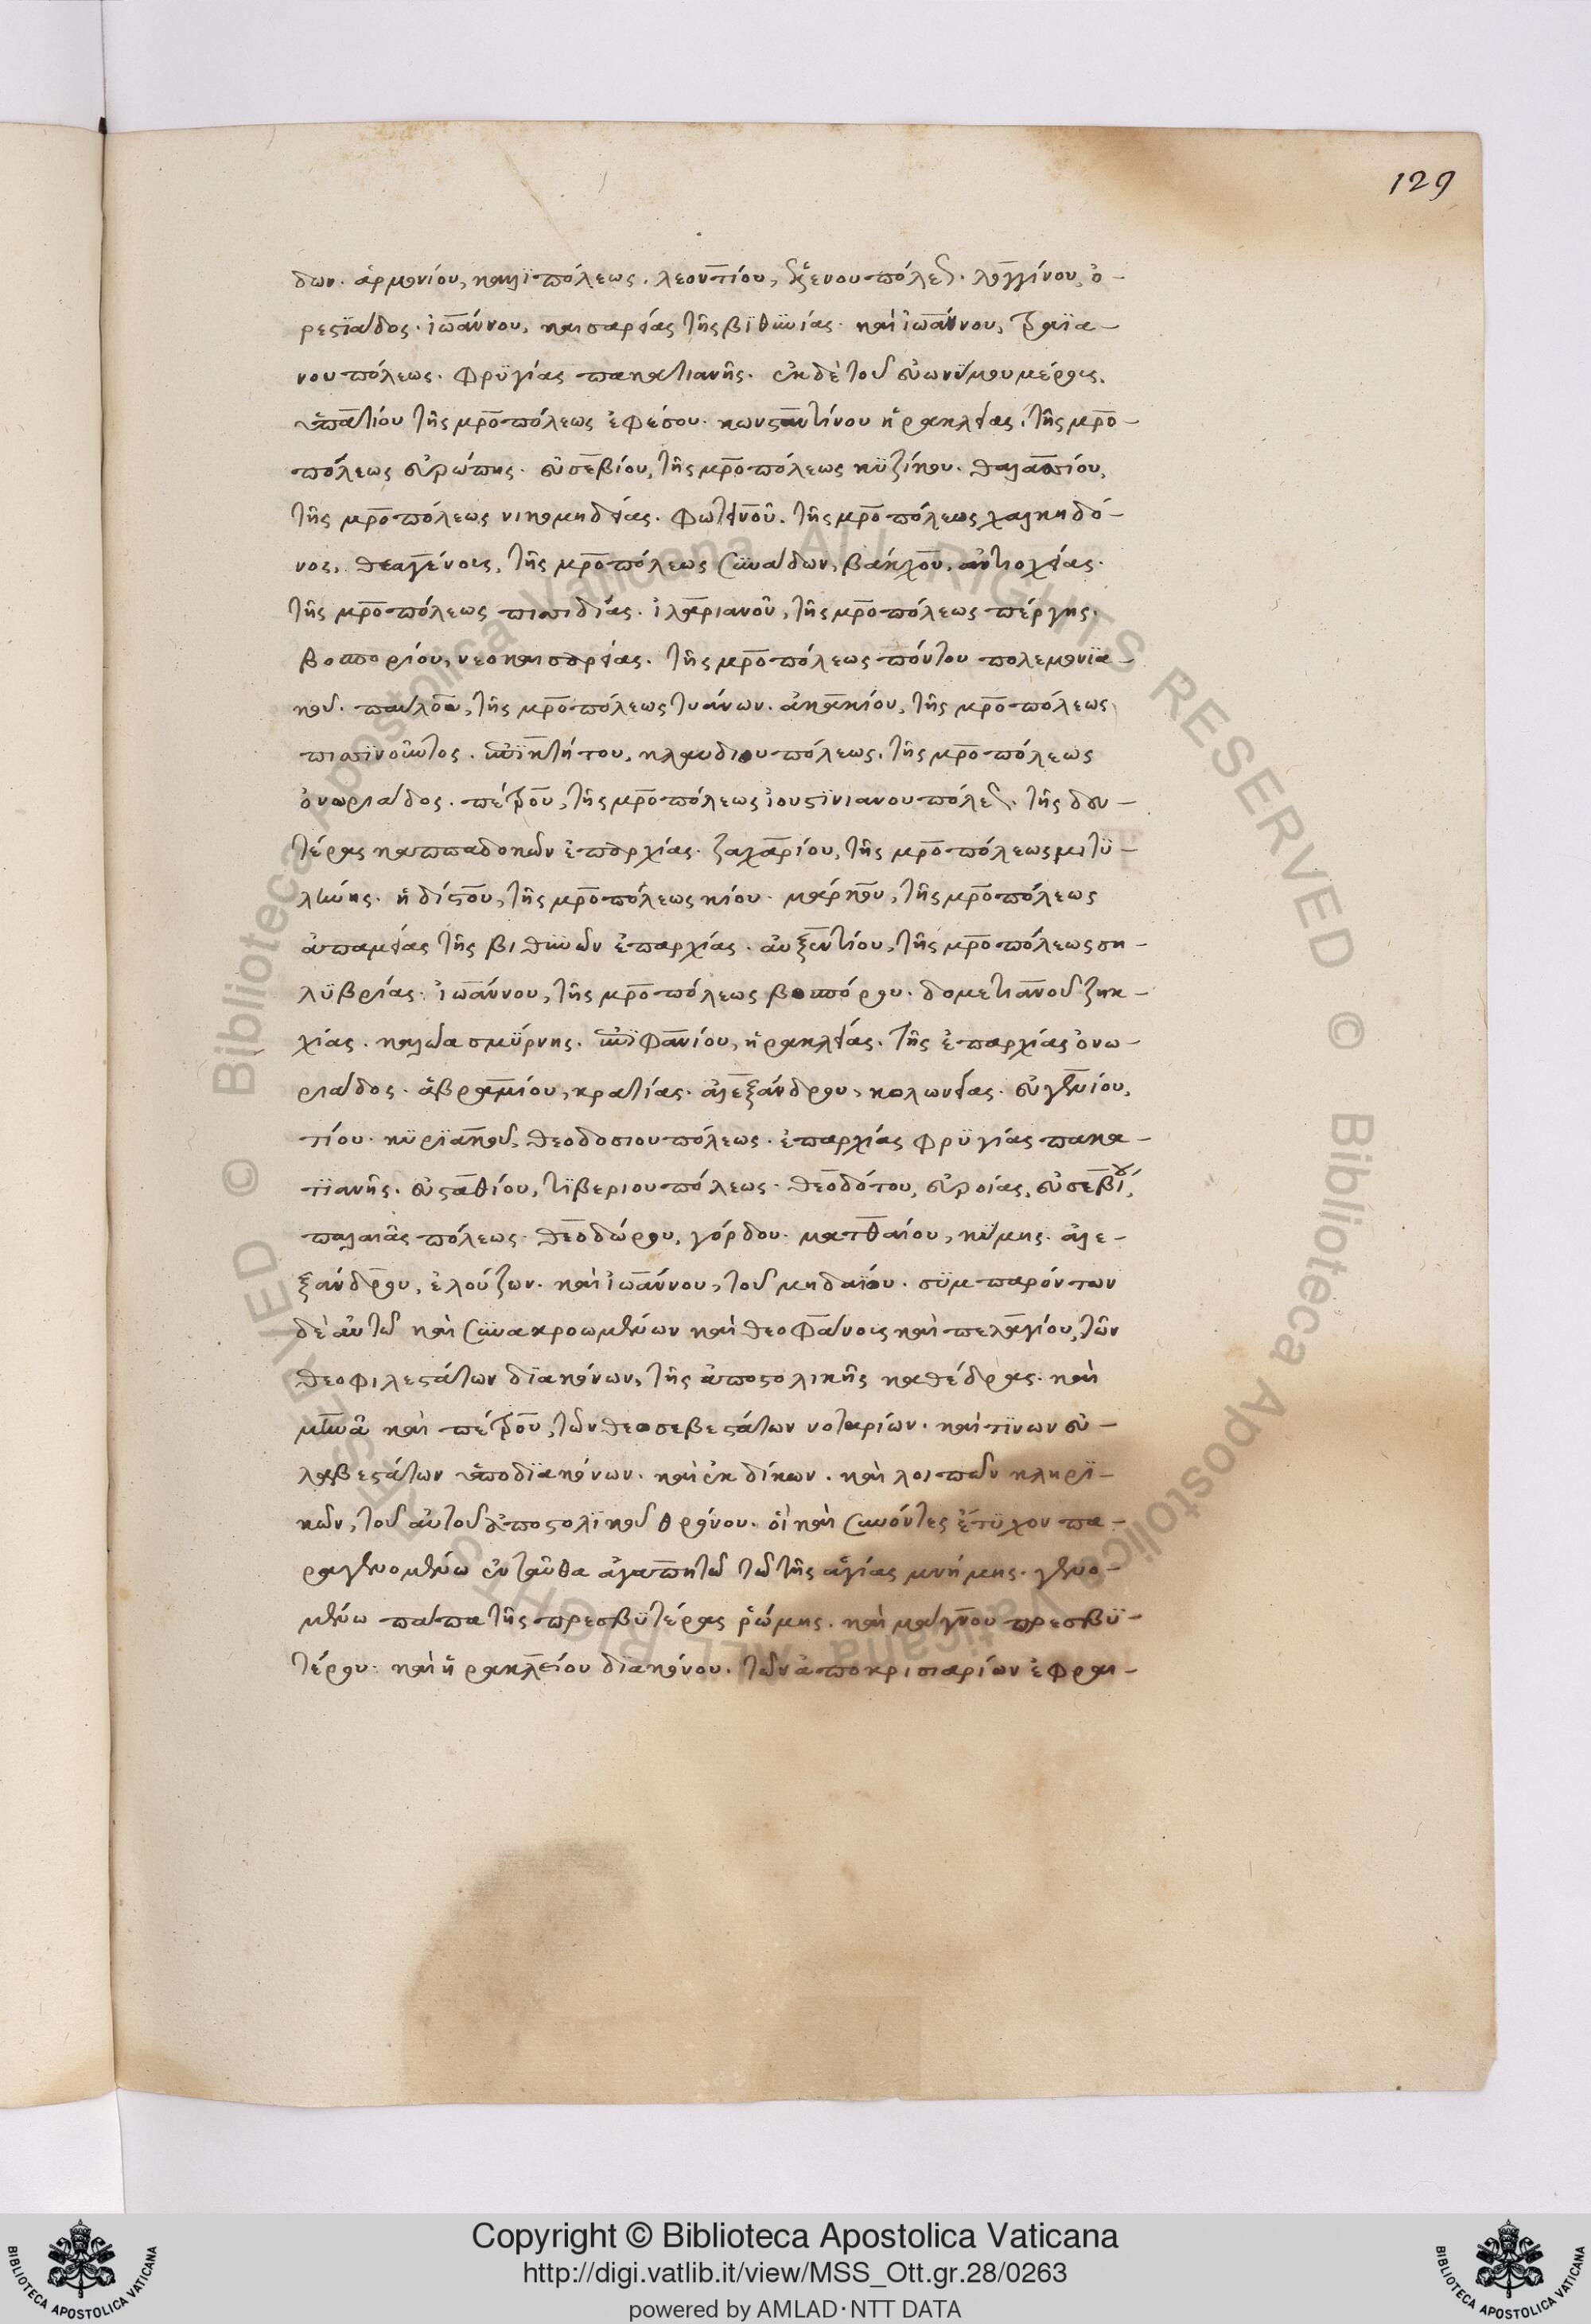 129
δων. ἁρμονίου, καλϊπόλεως. λεοντίου, ἀξενουπόλεως. λογγίνου, ὀ-
ρεςϊάδος. ἰωάννου, καισαρείας τῆς βϊθϋνίας. καὶ ἰωάννου, τραϊα-
νουπόλεως. φρϋγίας πακατιανῆς. ἐκ δὲ τοῦ εὐωνύμου μέρους.
ὑπατίου τῆς μροπόλεως ἐφέσου. κωνςαντίνου ἡρακλείας. τῆς μρο-
πόλεως εὐρώπης. εὐσεβίου, τῆς μροπόλεως κϋζίκου. θαλασσίου,
τῆς μροπόλεως νικομηδείας. φωτεινοῦ. τῆς μροπόλεως χαλκηδό-
νος. θεαγένους, τῆς μροπόλεως συνάδων, βάκχου, ἀντιοχείας.
τῆς μροπόλεως πισιδίας. ἱλαριανοῦ, τῆς μροπόλεως πέργης.
βοσπορίου, νεοκαισαρείας. τῆς μροπόλεως πόντου πολεμονϊα-
κοῦ. παύλου, τῆς μροπόλεως τυάνων. ἀκακίου, τῆς μροπόλεως
πισϊνοῦντος. ἐπϊκτήτου, κλαυδιουπόλεως. τῆς μροπόλεως
ὀνωριάδος. πέτρου, τῆς μροπόλεως ἰουςϊνιανουπόλεως. τῆς δευ-
τέρας καππαδοκῶν ἐπαρχίας. ζαχαρίου, τῆς μροπόλεως μιτϋ-
λήνης. ἡδίςου, τῆς μροπόλεως κίου. μάρκου, τῆς μροπόλεως
ἀπαμείας τῆς βιθϋνῶν ἐπαρχίας. αὐξεντίου, τῆς μροπόλεως ση-
λϋβρίας. ἰωάννου, τῆς μροπόλεως βοσπόρου. δομετιανοῦ ζηκ-
χίας. καλωα σμϋρνης. ἐπϊφανίου, ἡρακλείας. τῆς ἐπαρχίας ὀνω-
ριάδος. ἀβραμίου, κρατίας. ἀλεξάνδρου, κολωνείας. εὐγενίου,
τίου. κϋρϊακοῦ, θεοδοσιουπόλεως. ἐπαρχίας φρϋγίας πακα-
τϊανῆς. εὐςαθίου, τϊβεριουπόλεως. θεοδότου, εὐροίας, εὐσεβίου,
παλαιᾶς πόλεως. θεοδώρου, γόρδου. ματθαίου, κύμης. ἀλε-
ξάνδρου, ἐλούζων. καὶ ἰωάννου, τοῦ μηδαίου. σϋμπαρόντων
δὲ αὐτῶ καὶ σϋνακροωμένων καὶ θεοφάνους καὶ πελαγίου, τῶν
θεοφιλεςάτων δϊακόνων, τῆς ἀποςολικῆς καθέδρας. καὶ
μηνᾶ καὶ πέτρου, τῶν θεοσεβεςάτων νοταρίων. καὶ τϊνων εὐ-
λαβεςάτων ὑποδϊακόνων. καὶ ἐκδίκων. καὶ λοιπῶν κληρϊ-
κῶν, τοῦ αὐτοῦ ἀποςολϊκοῦ θρόνου. οἳ καὶ συνόντες ἔτϋχον πα-
ραγενομένω ἐνταῦθα ἀγαπητῶ τῶ τῆς ἁγίας μνήμης. γενο-
μένω πάπα τῆς πρεσβϋτέρας ῥώμης. καὶ μάγνου πρεσβϋ-
τέρου. καὶ ἡρακλείου δϊακόνου. τῶν ἀποκρισιαρίων ἐφραι-
Copyright © Biblioteca Apostolica Vaticana
http://digi.vatlib.it/view/MSS_Ott.gr.28/0263
powered by AMLAD·NTT DATA